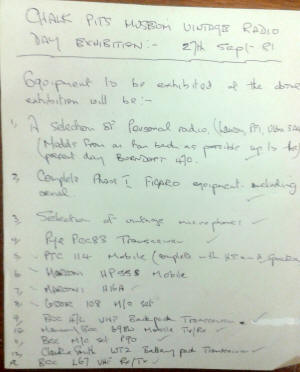 CHALK PITS MUSEUM VINTAGE RADIO
DAY EXHIBITION:- 27th Sept- 81
Equipment to be exhibited at the above
exhibition will be:-
1, A Selection of Personal radio,
(Models from as far back as possible up to the)
present day BURNDEPT
2, Complete Phase 1, FIGARO equipment including
aerial
3, Selection of vintage microphones
4, Pye Transceiver
5, PTC 114 Mobile (Complete with
6 MARCONI Mobile
7 MARCONI
8 108 M/O Set
9, BCC VHF Backpack Transceiver
10, BCC 69 Mobile Tx/Rx
BCC M/O set
12, WT2 Battery pack Transceiver
BCC L67 VHF Rx/Tx